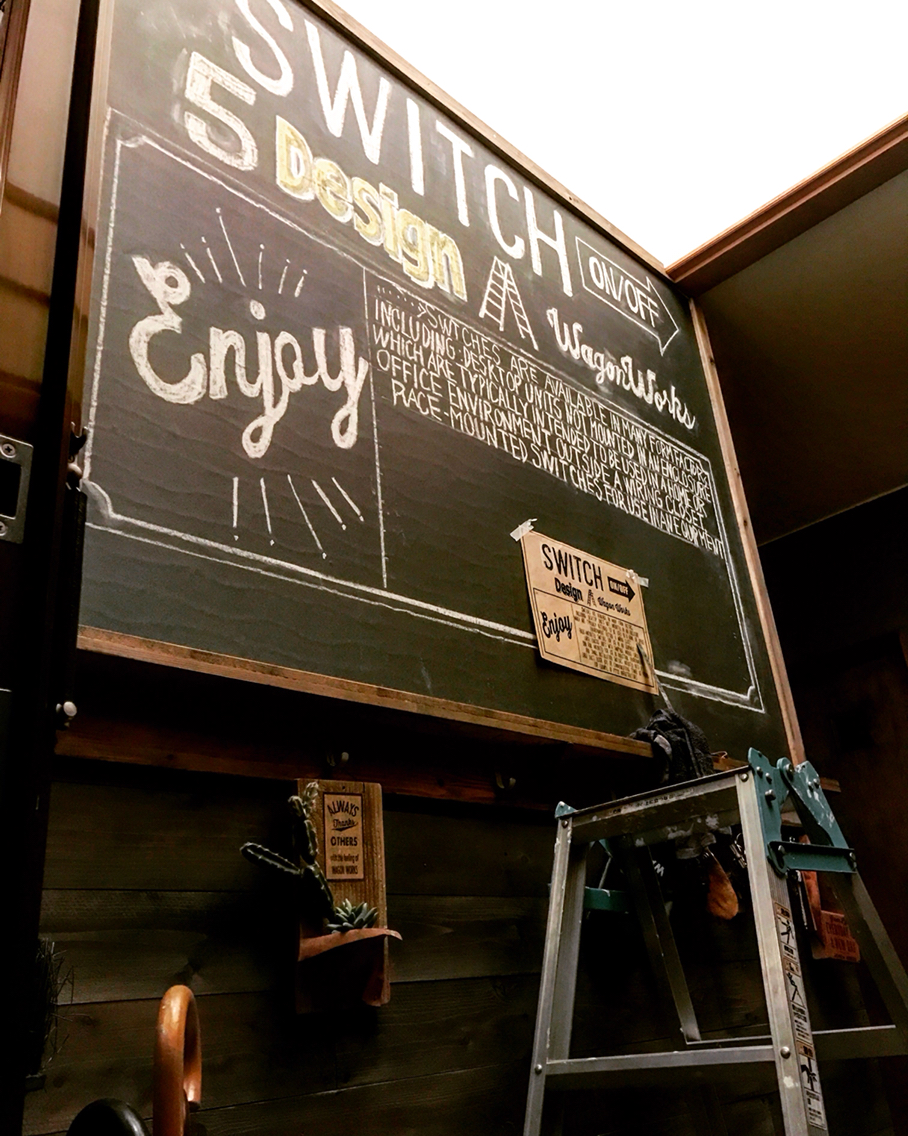 SWITCH
5 Design
ON/OFF
WagonWorks
Enjoy
SWTCHES ARE AVAILABLE IN MANY FORM FACTORS
INCLUDING DESKTOP UNITS NOT MOUNTED IN AN ENCLOSURE
WHICH ARE TYPICALLY INTENDED TO BE USED IN A HOME OR
OFFICE ENVIRONMENT OUTSIDE A WIRING CLOSET
RACE-MOUNTED SWITCHES FOR USE IN AN EQUIPMENT
SWITCH
ON/OFF
Design
Wagon Works
Enjoy
ALWAYS
Thanks
OTHERS
with the feeling of
WAGON WORKS